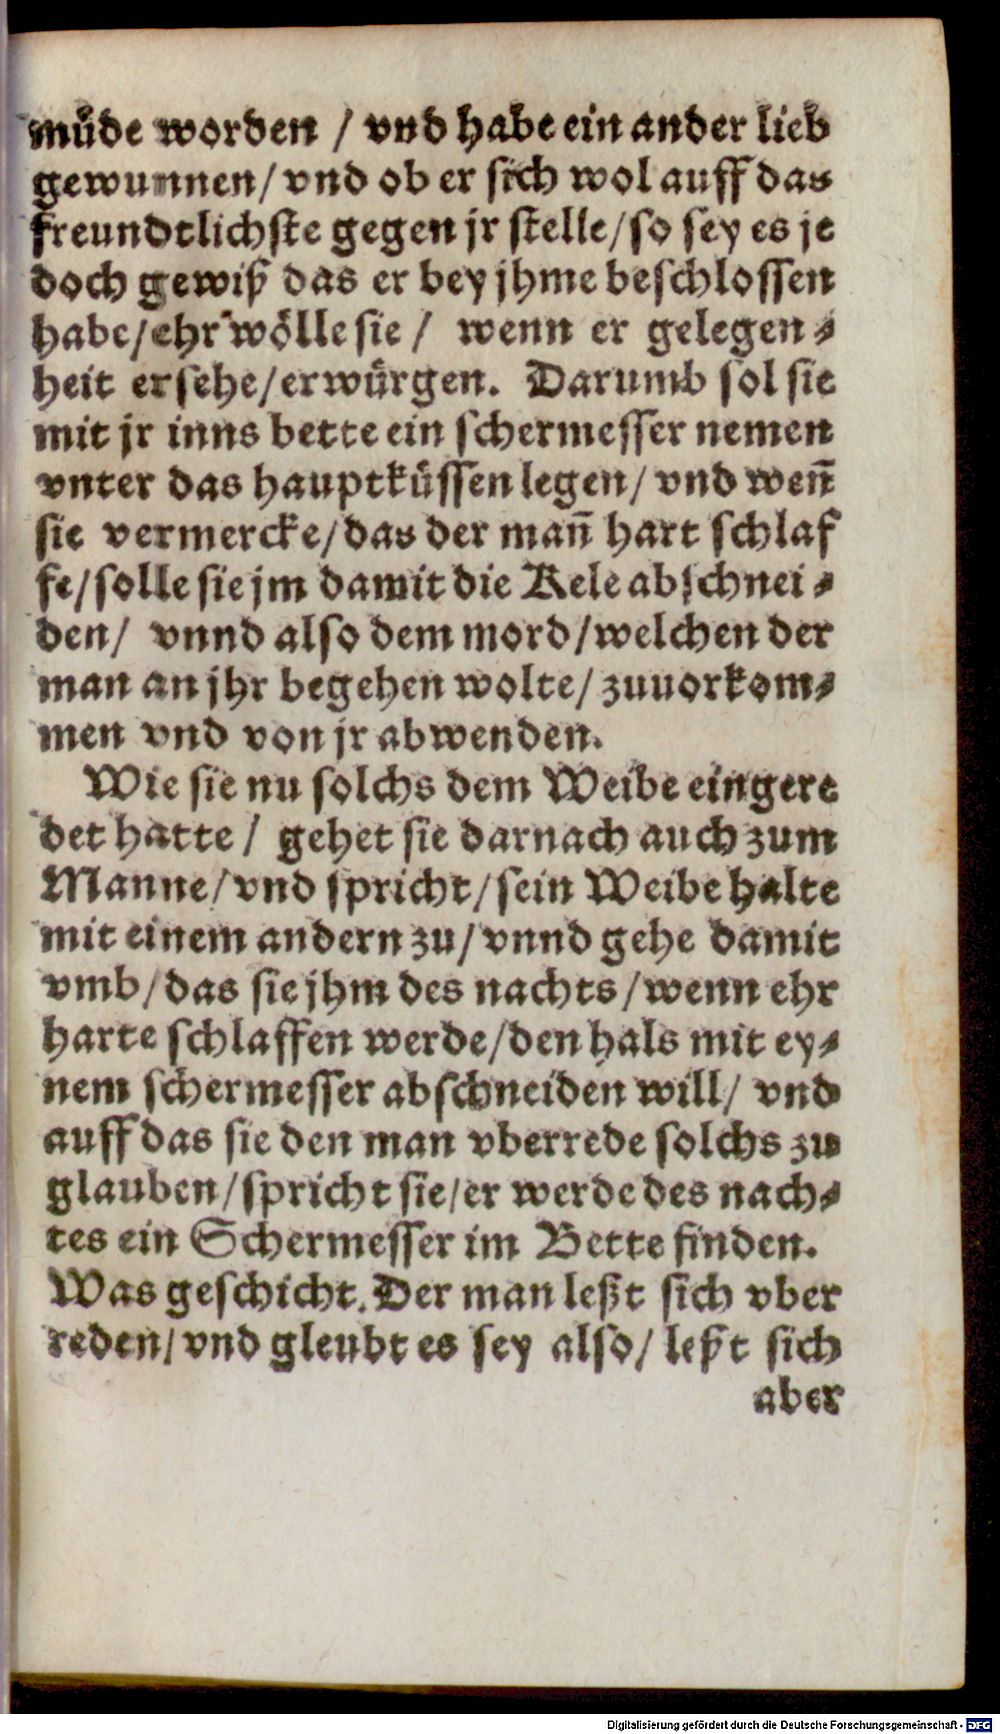 müde worden / vnd habe ein ander lieb
gewunnen/ vnd ob er sich wol auff das
freundtlichste gegen jr stelle/ so sey es je
doch gewiß das er bey jhme beschlossen
habe/ ehr wölle sie / wenn er gelegen⸗
heit ersehe/ erwürgen. Darumb sol sie
mit jr inns bette ein schermesser nemen
vnter das hauptküssen legen/ vnd weñ
sie vermercke/ das der mañ hart schlaf
fe/ solle sie jm damit die Kele abschnei⸗
den/ vnnd also dem mord/ welchen der
man an jhr begehen wolte/ zuuorkom⸗
men vnd von jr abwenden.
Wie sie nu solchs dem Weibe eingere
det hatte / gehet sie darnach auch zum
Manne/ vnd spricht/ sein Weibe halte
mit einem andern zu/ vnnd gehe damit
vmb/ das sie jhm des nachts/ wenn ehr
harte schlaffen werde/ den hals mit ey⸗
nem schermesser abschneiden will/ vnd
auff das sie den man vberrede solchs zu
glauben/ spricht sie/ er werde des nach⸗
tes ein Schermesser im Bette finden.
Was geschicht. Der man leßt sich vber
reden/ vnd gleubt es sey also/ leßt sich
aber
Digitalisierung gefördert durch die Deutsche Forschungsgemeinschaft - DFG